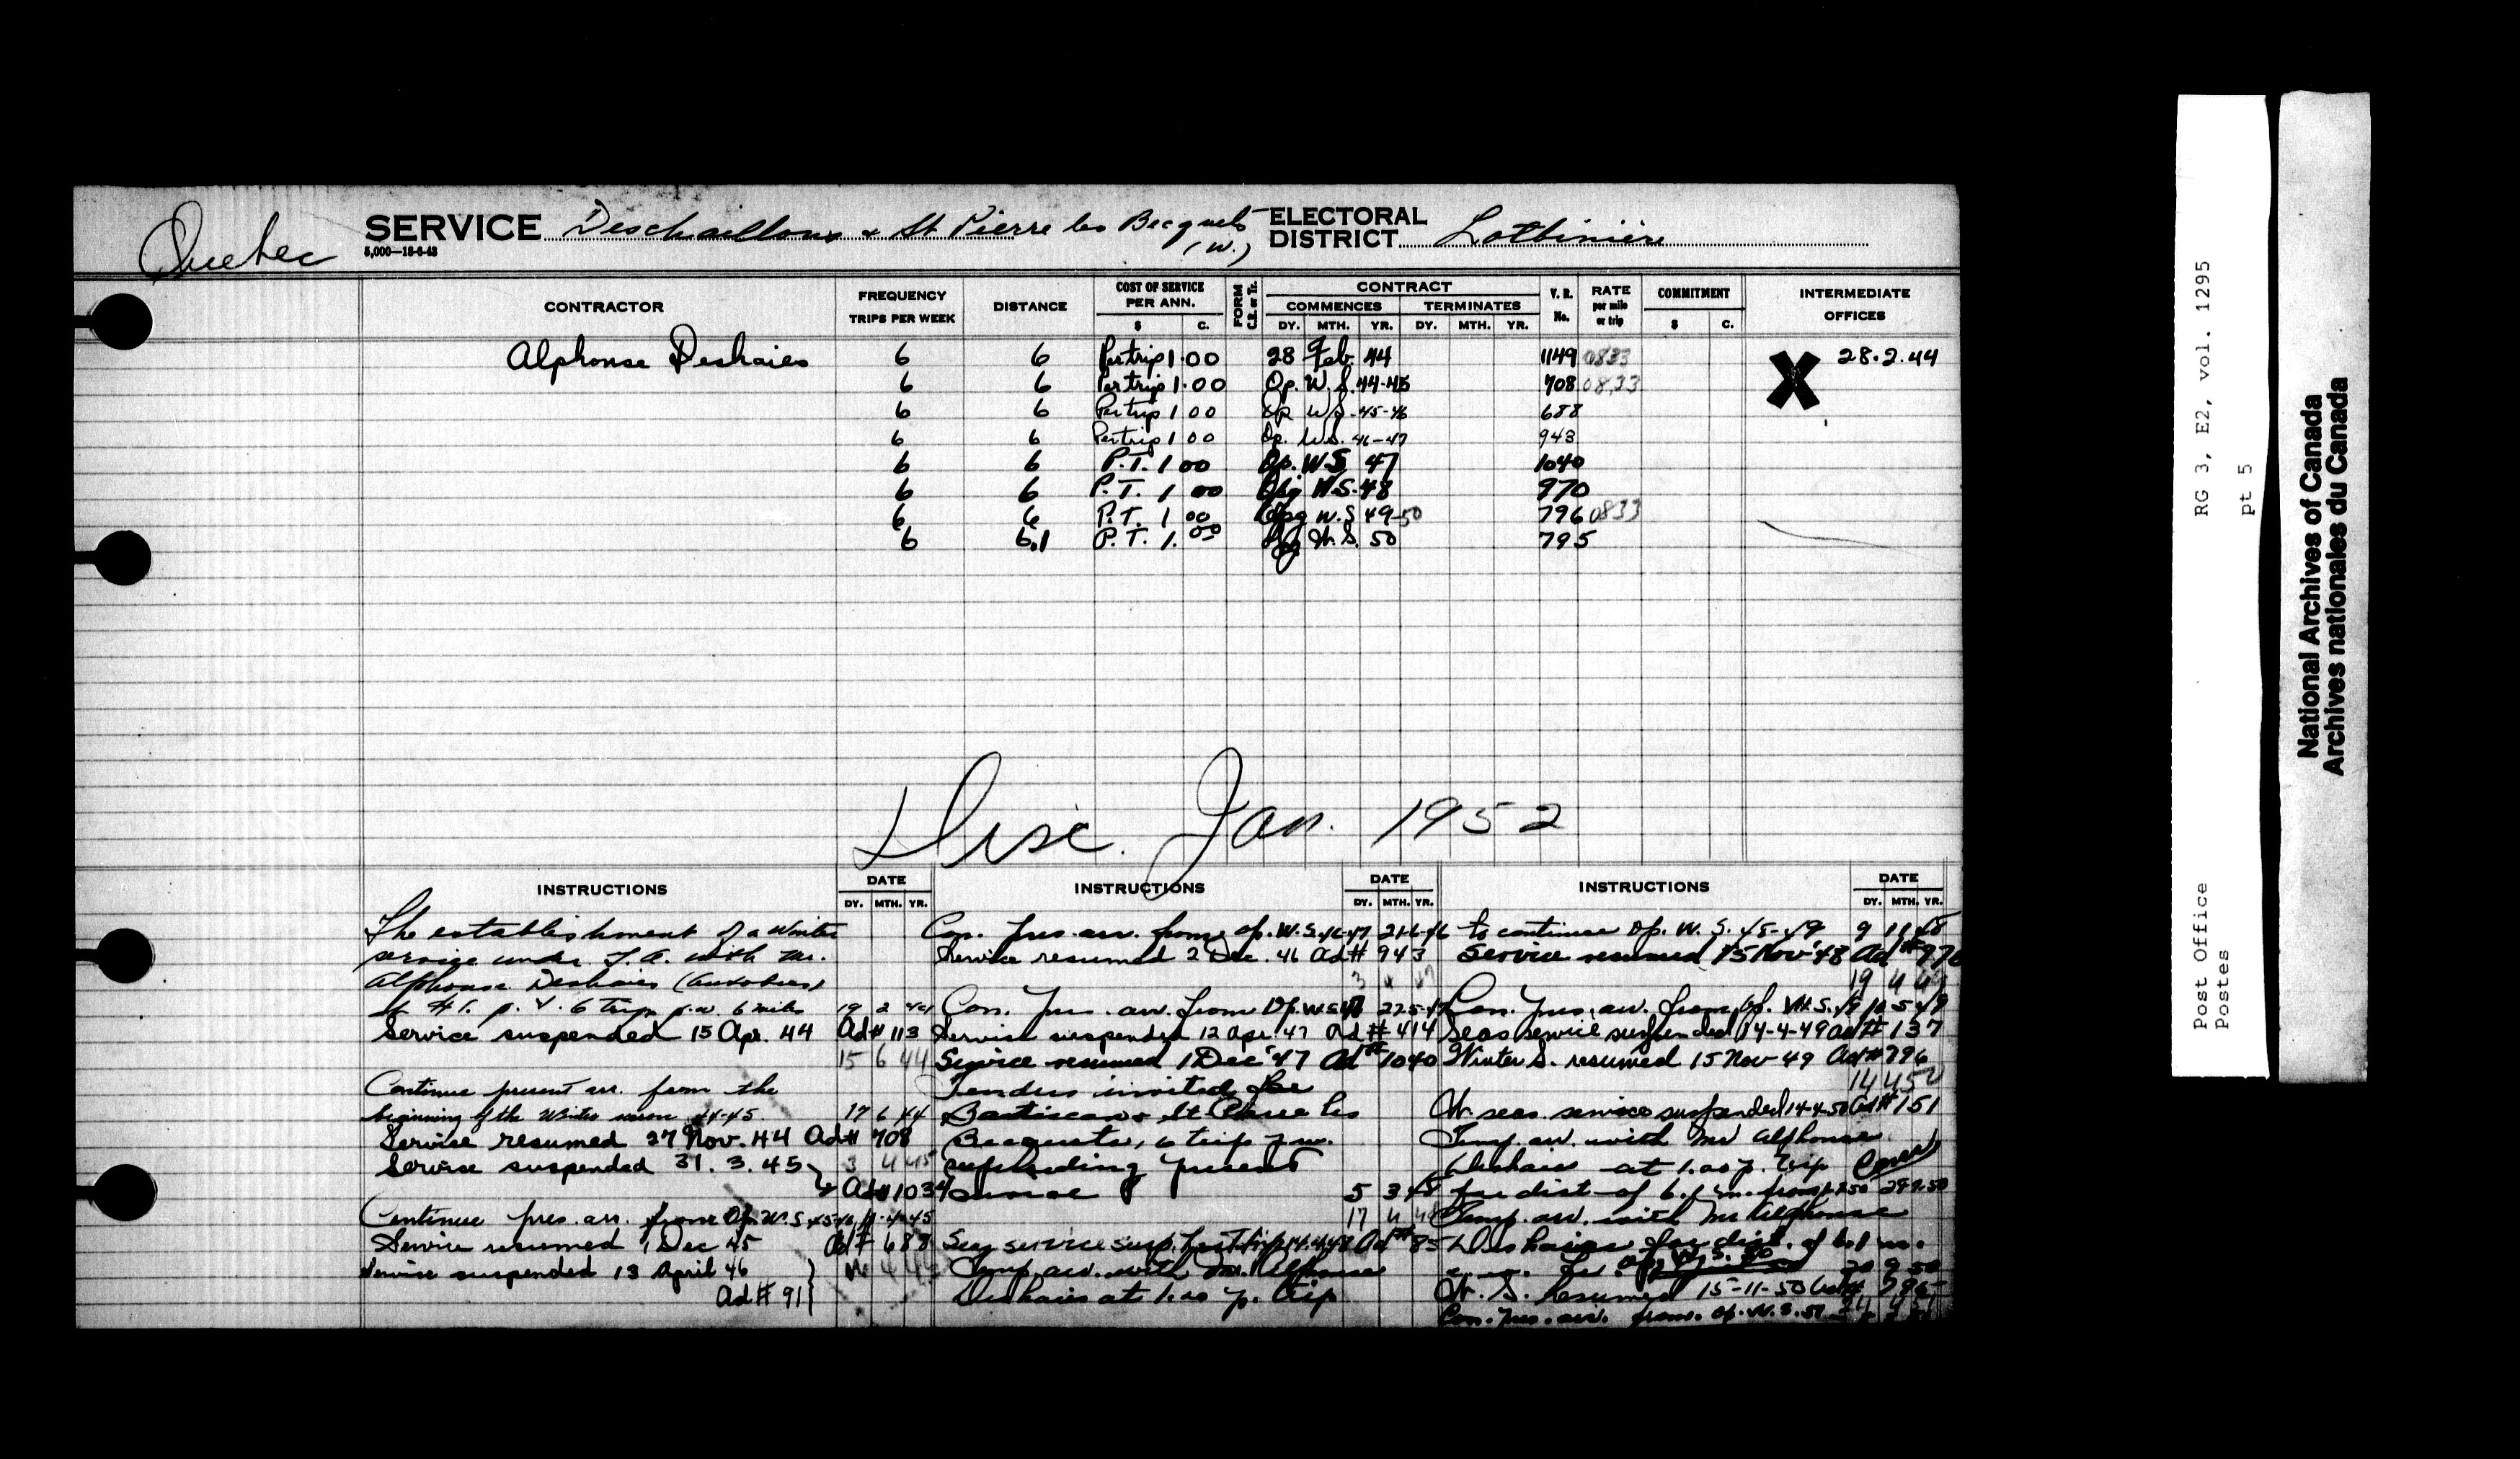 Quebec
SERVICE Deschaillons & St Pierre les Becquets (W.)
5,000—18-6-43
ELECTORAL DISTRICT Lotbiniere
CONTRACTOR
FREQUENCY TRIPS PER WEEK
DISTANCE
COST OF SERVICE PER ANN. $ C.
FORM C.R. or Tr.
CONTRACT
COMMENCES DY. MTH. YR.
TERMINATES DY. MTH. YR.
V. R. No.
RATE per mile or trip
COMMITMENT $ C.
INTERMEDIATE OFFICES
Alphonse Deshaies 6 6 Per trip 1.00 28 Feb. 44 1149 0833 X 28.2.44
6 6 Per trip 1.00 Op. W.S. 44-45 708 0833
6 6 Per trip 1 00 Op W.S. 45-46 688
6 6 Per trip 1 00 Op. W.S. 46-47 943
6 6 P.T. 1 00 Op. W.S. 47 1040
6 6 P.T. 1 00 Opg W.S. 48 970
6 6 P.T. 1 00 Opg W.S 49-50 796 0833
6 6.1 P.T. 1.00 Opg W.S. 50 795
Disc. Jan. 1952
INSTRUCTIONS DATE DY. MTH. YR.
The establishment of a Winter
service under T.A. with Mr.
Alphonse Deshaies (Autobus)
at $1. p. t. 6 trips p.w. 6 miles 19 2 44
Service suspended 15 Apr. 44 Ad# 113
15 6 44
Continue present arr. from the
beginning of the Winter season 44-45 17 6 44
Service resumed 27 Nov. 44 Ad# 708
Service suspended 31.3.45 3 4 45
Ad# 1034
Continue pres. arr. from Op. W.S. 45-46 11-4-45
Service resumed 1 Dec 45 Ad# 688
Service suspended 13 April 46
Ad# 91
INSTRUCTIONS DATE DY. MTH. YR.
Con. pres. arr. from op. W.S. 46-47 21-6-46
Service resumed 2 Dec. 46 Ad# 943
Con. Pres. arr. from Op. W.S. 47 22-5-47
Service suspended 12 Apr. 47 Ad# 414
Service resumed 1 Dec '47 Ad# 1040
Tenders invited for
Batiscan & St Pierre les
Becquets, 6 trips p.w.
superseding present
service 5 3 48
17 4 48
Seas service susp. Ad# 85
Temp. arr. with Mr. Alphonse
Deshaies at 1.00 p. trip
INSTRUCTIONS DATE DY. MTH. YR.
to continue Op. W.S. 48-49 9 11 48
Service resumed 15 Nov '48 Ad# 970
19 4 49
Con. pres. arr. from Op. W.S. 49 10 5 49
Seas service suspended 14-4-49 Ad# 137
Winter S. resumed 15 Nov 49 Ad# 796
W. seas. service suspended 14-4-50 Ad# 151
Temp. arr. with Mr Alphonse
Deshaies at 1.00 p. trip (over)
for dist. of 6.1 m. from
Temp. arr. with Mr Alphonse
Deshaies for dist. of 6.1 m.
Op. W.S. 50 20 9 50
W. S. Resumed 15-11-50 Ad# 795
Con. Pres. arr. from. Op. W.S. 51
RG 3, E2, vol. 1295
pt 5
Post Office
Postes
National Archives of Canada
Archives nationales du Canada